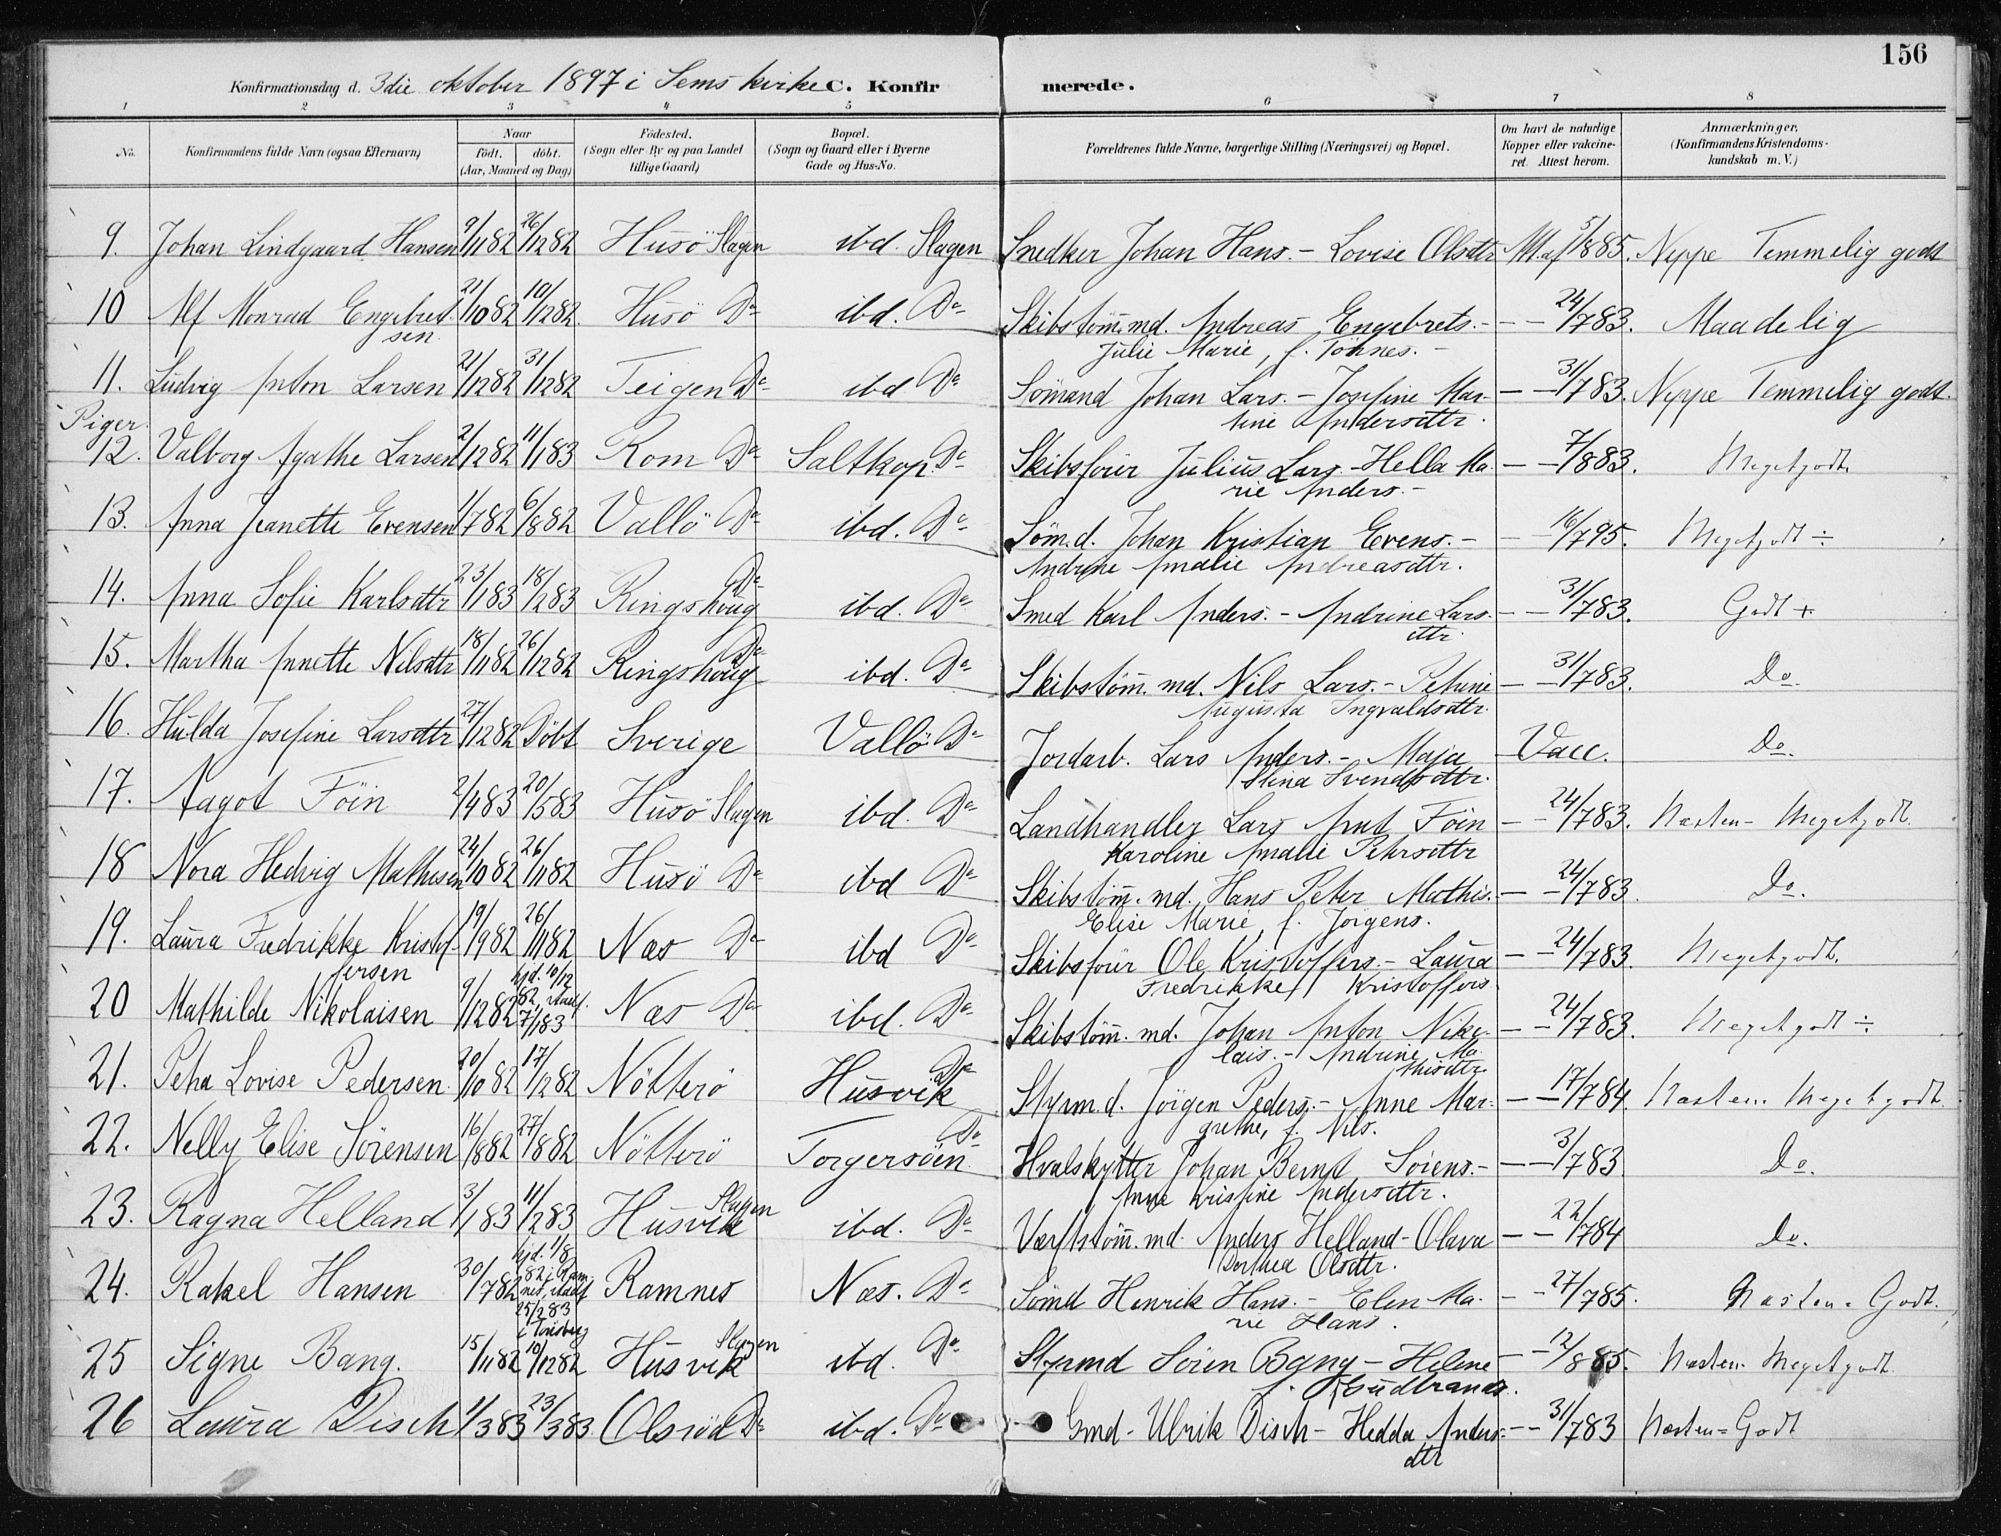 156
Konfirmationsdag d. 3die oktober 1897 i Sems kirke C. Konfirmerede.
1 2 3 4 5 6 7 8
No. Konfirmandens fulde Navn (ogsaa Efternavn) Naar født. døbt. (Aar, Maaned og Dag) Fødested. (Sogn eller By og paa Landet tillige Gaard) Bopæl. (Sogn og Gaard eller i Byerne Gade og Hus-No. Forældrenes fulde Navne, borgerlige Stilling (Næringsvei) og Bopæl. Om havt de naturlige Kopper eller vakcineret. Attest herom. Anmærkninger. (Konfirmandens Kristendomskundskab m. V.)
9. Johan Lindgaard Hansen 9/11 82 26/12 82 Husö Slagen ibd. Slagen Snedker Johan Hans. - Lovise Olsdtr Att. af 5/8 85. Neppe Temmelig godt
10 Alf Monrad Engebret- 21/10 82 10/12 82 Husö Do ibd. Do Skibstöm̄.md. Andreas Engebrets. - — 24/7 83. Maadelig
sen Julie Marie, f. Tönnes. -
11. Ludvig Anton Larsen 21/12 82 31/12 82 Teigen Do ibd Do Sömand Johan Lars. - Josefine Mar- — 31/7 83. Neppe Temmelig godt.
Piger. tine Andersdtr.
12. Valborg Agathe Larsen 2/12 82 11/1 83 Rom Do Saltkop. Do Skibsförer Julius Lars. - Hella Ma- — 7/8 83. Megetgodt.
rie Anders. -
13. Anna Jeanette Evensen 1/7 82 6/8 82 Vallö Do ibd. Do Söm.d. Johan Kristian Evens. - — 16/7 95. Megetgodt ÷
Andrine Amalie Andreasdtr.
14. Anna Sofie Karlsdtr 23/1 83 18/2 83 Ringshoug Do ibd. Do Smed Karl Anders. - Andrine Lars- — 31/7 83. Godt +
dtr.
15. Martha Annette Nilsdtr 18/11 82 26/12 82 Ringshoug Do ibd. Do Skibstöm̄. md. Nils Lars. - Petrine — 31/7 83. Do.
Augusta Ingvaldsdtr.
16. Hulda Josefine Larsdtr 27/12 82 Döbt Sverige Vallö Do Jordarb. Lars Anders. - Maja — Vacc. Do.
Stina Svendsdtr.
17. Aagot Föin 2/4 83 20/5 83 Husö Slagen ibd. Do Landhandler Lars Arnt Föin — 24/7 83. Næsten - Megetgodt.
Karoline Amalie Petersdtr
18 Nora Hedvig Mathisen 24/10 82 26/11 82 Husö Do ibd Do Skibstöm̄. md. Hans Peter Mathis. — 24/7 83. Do.
Elise Marie, f. Jorgens.
19. Laura Fredrikke Kristof- 19/9 82 26/11 82 Næs Do ibd Do Skibsförer Ole Kristoffers. - Laura — 24/7 83. Megetgodt.
fersen Fredrikke Kristoffers
20 Mathilde Nikolaisen 9/12 82 hjd. 10/12 82, stadf. 7/1 83 Næs Do ibd. Do Skibstöm̄. md. Johan Anton Niko- — 24/7 83. Megetgodt ÷
lais. - Andrine Ma-
thisdtr.
21. Petra Lovise Pedersen. 20/10 82 17/12 82 Nötterö Husvik Do Styrm.d. Jörgen Peders. - Anne Mar- — 17/7 84. Næsten Megetgodt
grethe, f. Nils.
22. Nelly Elise Sörensen 16/8 82 27/8 82 Nötterö Torgersöen Do Hvalskytter Johan Bernt Sörens. - — 3/7 83 Do.
Anne Kristine Andersdtr.
23. Ragna Helland 3/1 83 11/2 83 Husvik Slagen ibd. Do Værftstöm̄. md. Anders Helland - Olava — 22/7 84 Do.
Dorthea Olsdtr.
24. Rakel Hansen 30/7 82 hjd. 1/8 82 i Ramnes, stadf 25/2 83 i Tönsberg Ramnes Næs. Do Sömd Henrik Hans. - Elen Ma- — 27/7 85. Næsten - Godt.
rie Hans.
25 Signe Bang. 15/11 82 10/12 82 Husvik Slagen ibd. Do Styrmd Sören Bang - Helene — 12/8 85. Næsten Megetgodt
f. Gudbrands.
26 Laura Disch 1/3 83 23/3 83 Olsröd Do ibd. Do Gmd - Ulrik Disch - Hedda Anders- — 31/7 83 Næsten - Godt
dtr